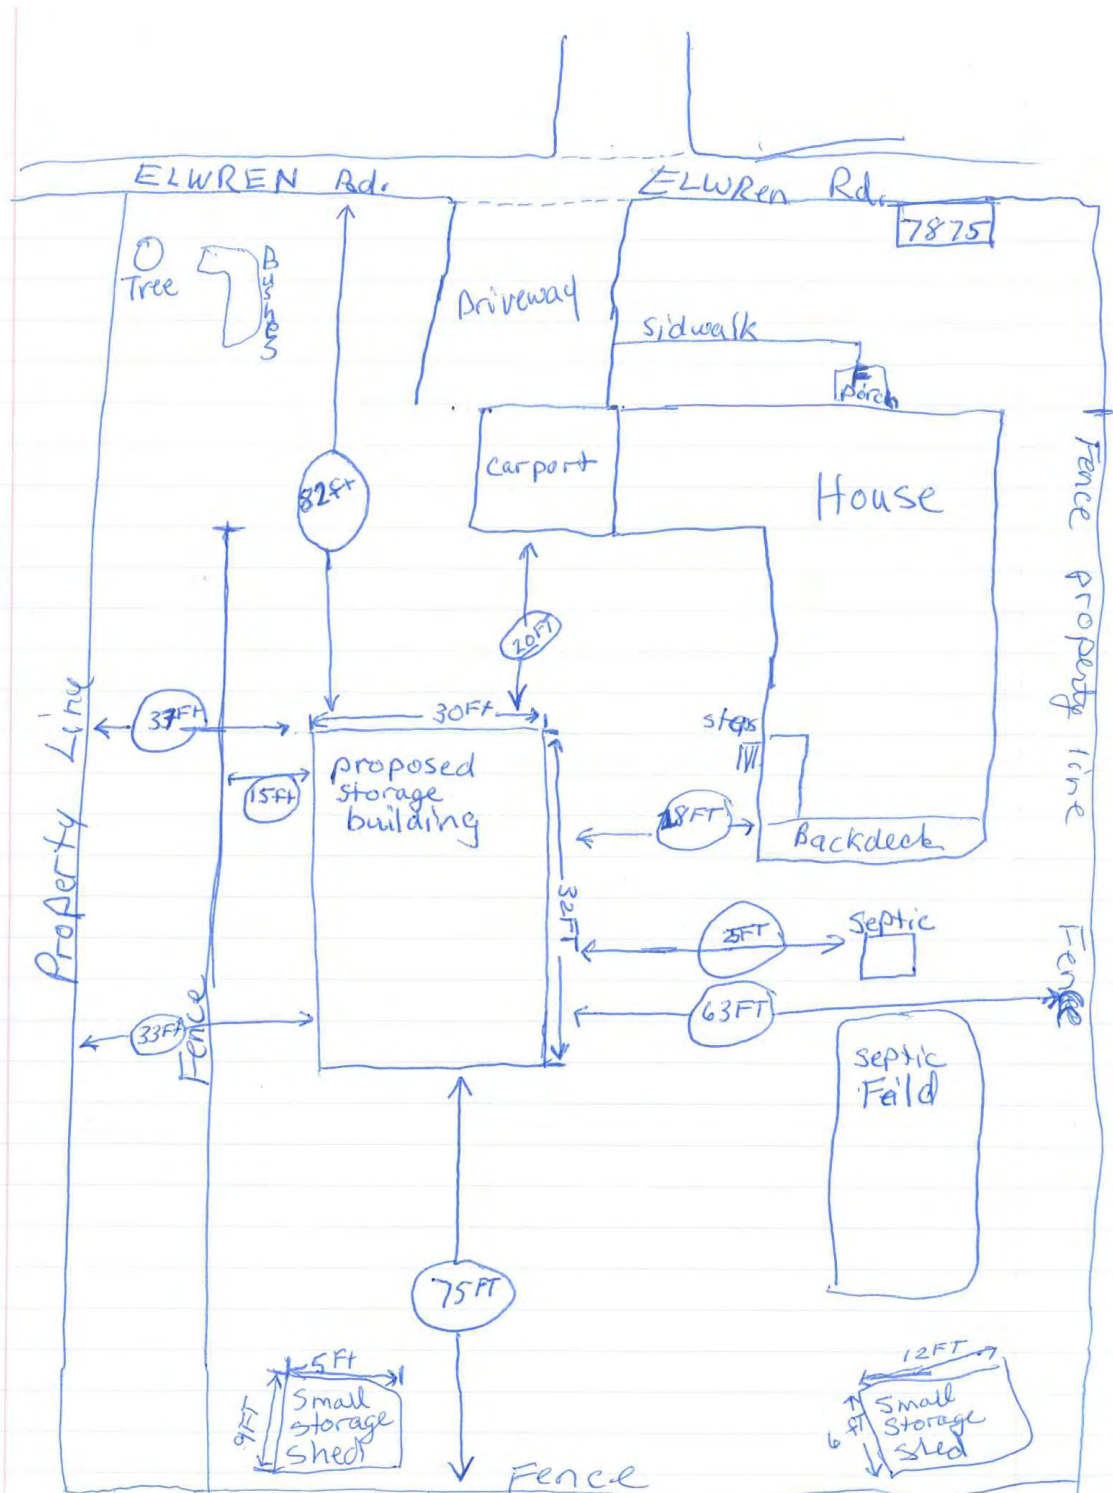 ELWREN Rd.
ELWRen Rd.
7875
Tree
Bushes
Driveway
sidwalk
porch
carport
House
82ft
Fence property line
20FT
37Ft
30Ft
steps
15ft
proposed
storage
building
18FT
Backdeck
Property Line
32FT
25FT
septic
Fence
63FT
33Ft
Fence
septic
Feild
75FT
5Ft
9FT
Small
storage
shed
12FT
6 ft
Small
storage
shed
Fence